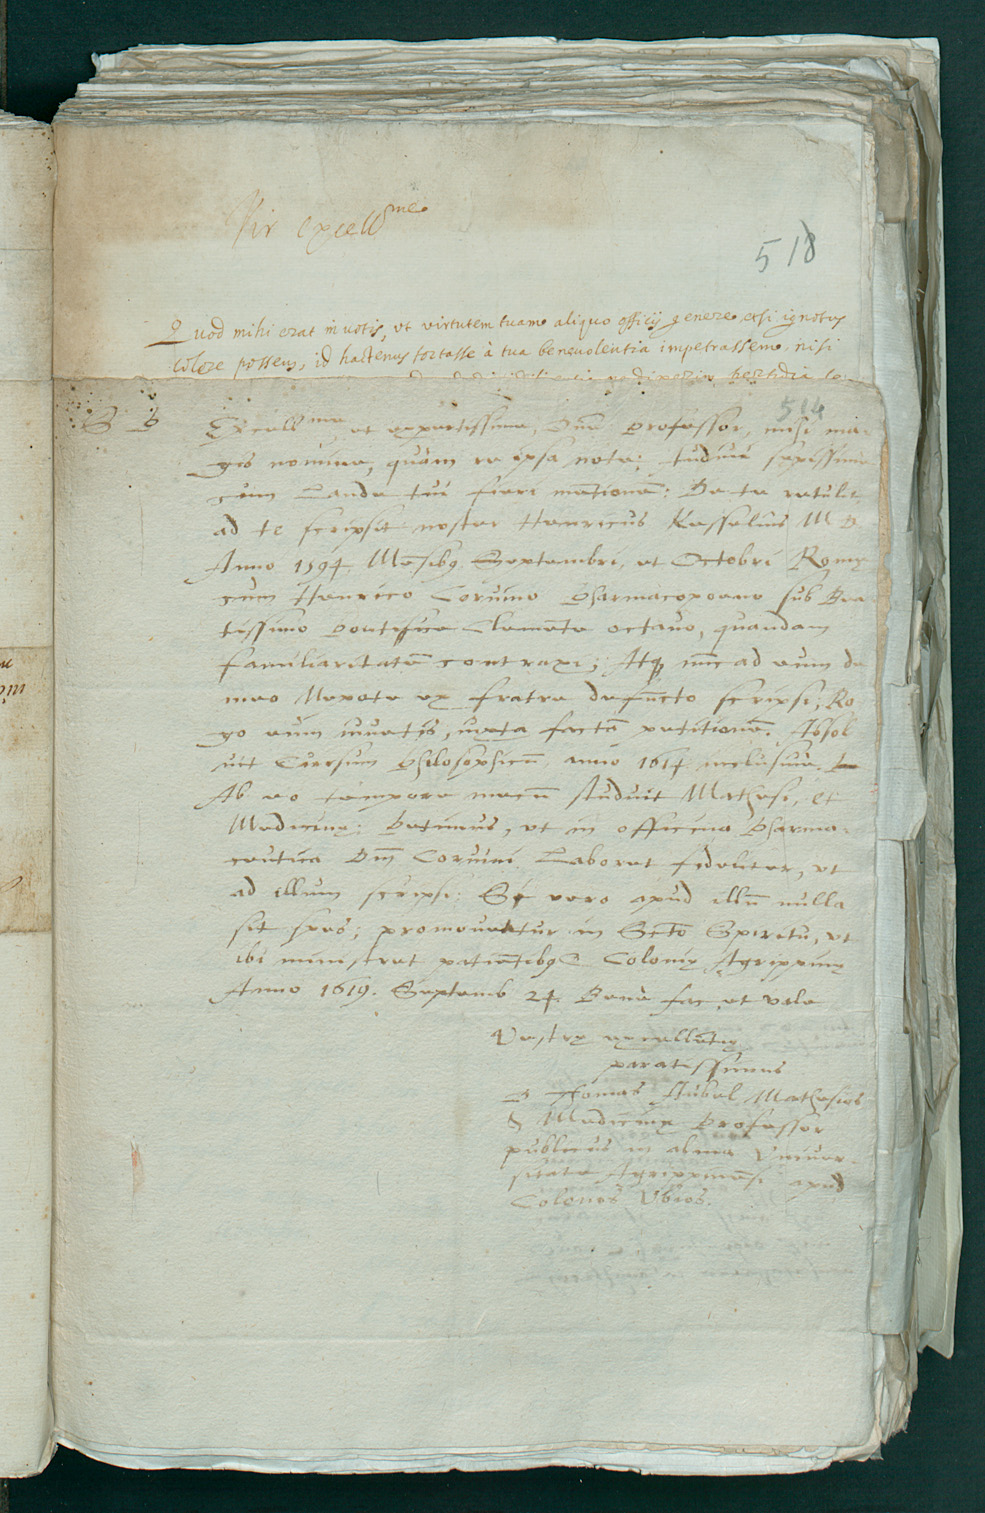 Vir excell.me
518
Quod mihi erat in votis, ut virtutem tuam aliquo officij genere, etsi ignotus
colere possem, id hactenus fortasse à tua benevolentia impetrassem, nisi
514
S P Excell.me et expertissime, Dne Professor, mihi ma-
gis nomine, quàm re ipsa note; audiui sæpissime
cum Laude tui fieri mentionē: De te retulit,
ad te scripsit noster Henricus Kesselius M D
Anno 1594. Mensibꝰ Septembri, et Octobri Romę
cum Henrico Coruino Pharmacopoeo sub Bea
tissimo Pontifice Clemente octauo, quandam
familiaritatē contraxi; Atqꝫ nūc ad eum de
meo Nepote ex fratre defuncto scripsi; Ro
go eum iuuetis, iuxta factā petitionē. Absol
uit Cursum Philosophicū, anno 1614 inclusiuè.
Ab eo tempore mecū studuit Mathesi, et
Medicinę: Petimus, ut in officina Pharma-
ceutica Dnī Coruini Laboret fideliter, ut
ad illum scripsi: Si vero apud illū nulla
sit spes; promoueatur in Scto Spiritu, ut
ibi ministret patientibꝰ Colonię Agrippinę
Anno 1619. Septemb 24. Bene fac, et vale
Vestrę excellentię
paratissimus
D Thomas Aubel Matheseos
& Medicinę Professor
publicus in alma Vniuer-
sitate Agrippinensi apud
Colonos Vbios.